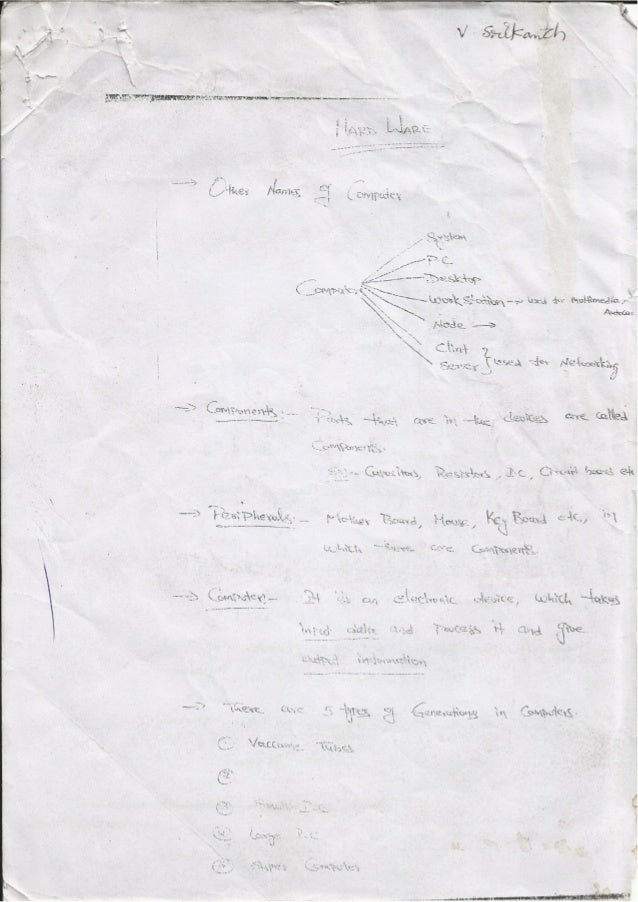 V Srikanth
HARD WARE
→ Other Names of Computer
System
PC
Desktop
Computer
Work Station → used for multimedia,
Node →
Clint
Server } used for Networking
→ Components :- Parts that are in the devices are called
Components.
Ex:- Capacitors, Resistors, I.C, Circuit board etc
→ Peripherals :- Mother Board, Mouse, Key Board etc., in
which there are components
→ Computer :- It is an electronic device, which takes
input data and process it and give
output information
→ There are 5 types of Generations in Computers.
① Vaccume Tubes
②
③ I.C
④ Large I.C
⑤ Super Computer